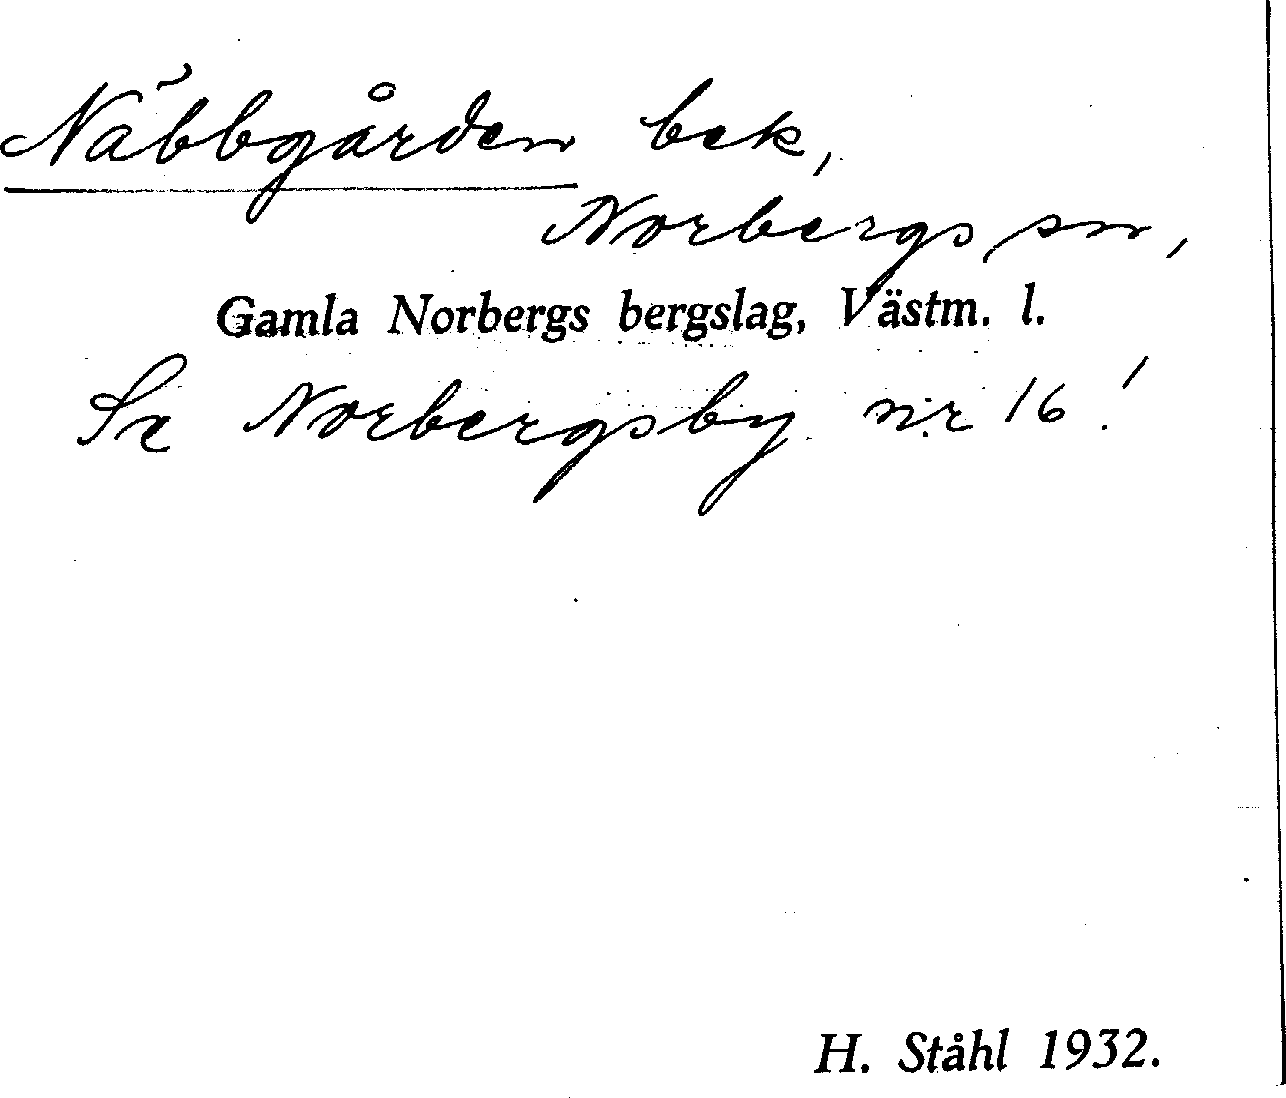 Näbbgården bek,
Norbergs sn,
Gamla Norbergs bergslag, Västm. l.
Se Norbergsby nr 16!
H. Ståhl 1932.